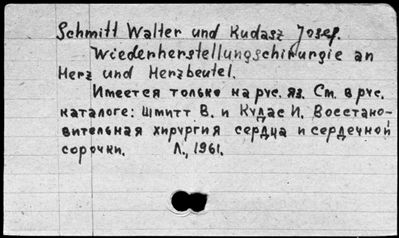 Schmitt Walter und Kudasz Josef.
Wiederherstellungschirurgie an
Herz und Herzbeutel.
Имеется только на рус. яз. См. в рус.
каталоге: Шмитт В. и Кудас И. Восстано-
вительная хирургия сердца и сердечной
сорочки. Л., 1961.